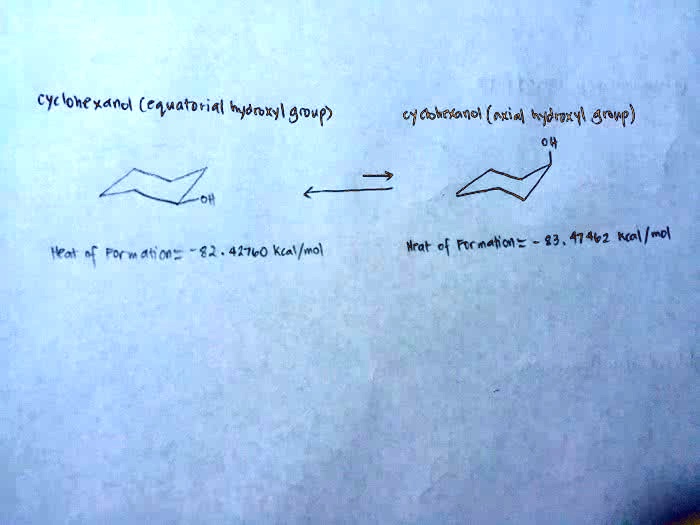 cyclohexanol (equatorial hydroxyl group)
cyclohexanol (axial hydroxyl group)
OH
OH
Heat of Formation= -82.42760 Kcal/mol
Heat of Formation= -83.47462 Kcal/mol